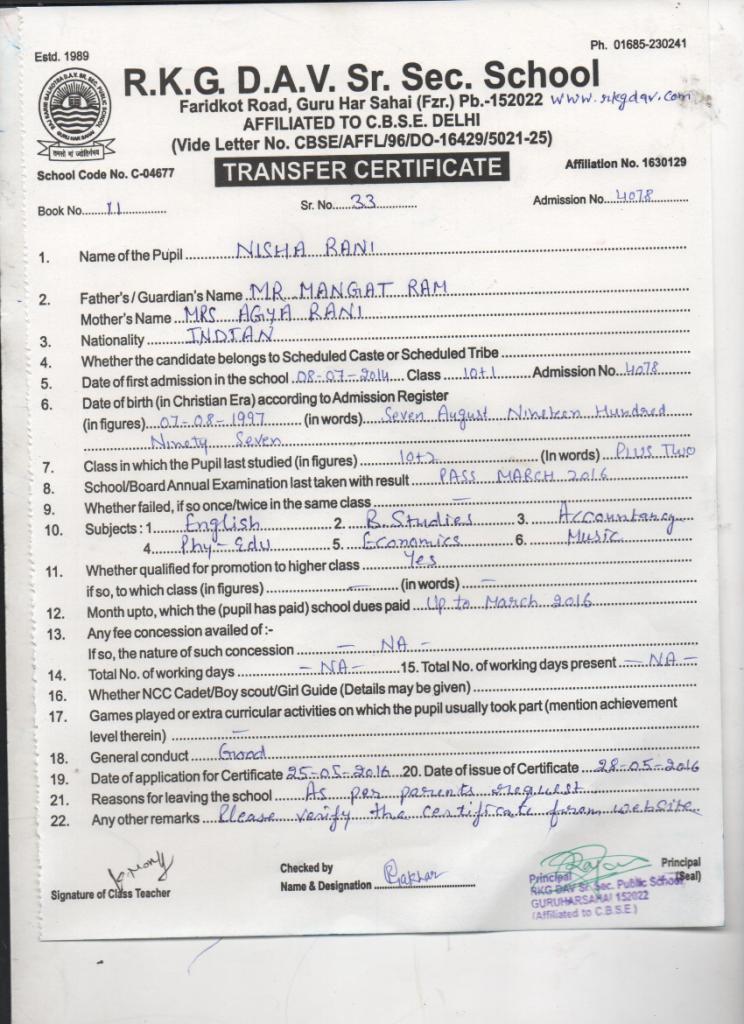 Estd. 1989
Ph. 01685-230241
R.K.G. D.A.V. Sr. Sec. School
Faridkot Road, Guru Har Sahai (Fzr.) Pb.-152022 www.rkgdav.com
AFFILIATED TO C.B.S.E. DELHI
(Vide Letter No. CBSE/AFFL/96/DO-16429/5021-25)
School Code No. C-04677
TRANSFER CERTIFICATE
Affiliation No. 1630129
Book No. 11 Sr. No. 33 Admission No. 4078
1. Name of the Pupil NISHA RANI
2. Father's / Guardian's Name MR MANGAT RAM
Mother's Name MRS AGYA RANI
3. Nationality INDIAN
4. Whether the candidate belongs to Scheduled Caste or Scheduled Tribe
5. Date of first admission in the school 08-07-2014 Class 10+1 Admission No. 4078
6. Date of birth (in Christian Era) according to Admission Register
(in figures) 07-08-1997 (in words) Seven August Nineteen Hundred
Ninety Seven
7. Class in which the Pupil last studied (in figures) 10+2 (In words) PLUS TWO
8. School/Board Annual Examination last taken with result PASS MARCH 2016
9. Whether failed, if so once/twice in the same class —
10. Subjects : 1. English 2. B.Studies 3. Accountancy
4. Phy-Edu 5. Economics 6. Music
11. Whether qualified for promotion to higher class Yes
if so, to which class (in figures) — (in words) —
12. Month upto, which the (pupil has paid) school dues paid Up to March 2016
13. Any fee concession availed of :-
If so, the nature of such concession — NA -
14. Total No. of working days - NA - 15. Total No. of working days present — NA -
16. Whether NCC Cadet/Boy scout/Girl Guide (Details may be given)
17. Games played or extra curricular activities on which the pupil usually took part (mention achievement
level therein) —
18. General conduct Good
19. Date of application for Certificate 25-05-2016 20. Date of issue of Certificate 28-05-2016
21. Reasons for leaving the school As per parents request
22. Any other remarks Please verify the certificate from website
Signature of Class Teacher
Checked by
Name & Designation
Principal
(Seal)
Principal
RKG DAV Sr. Sec. Public School
GURUHARSAHAI 152022
(Affiliated to C.B.S.E)